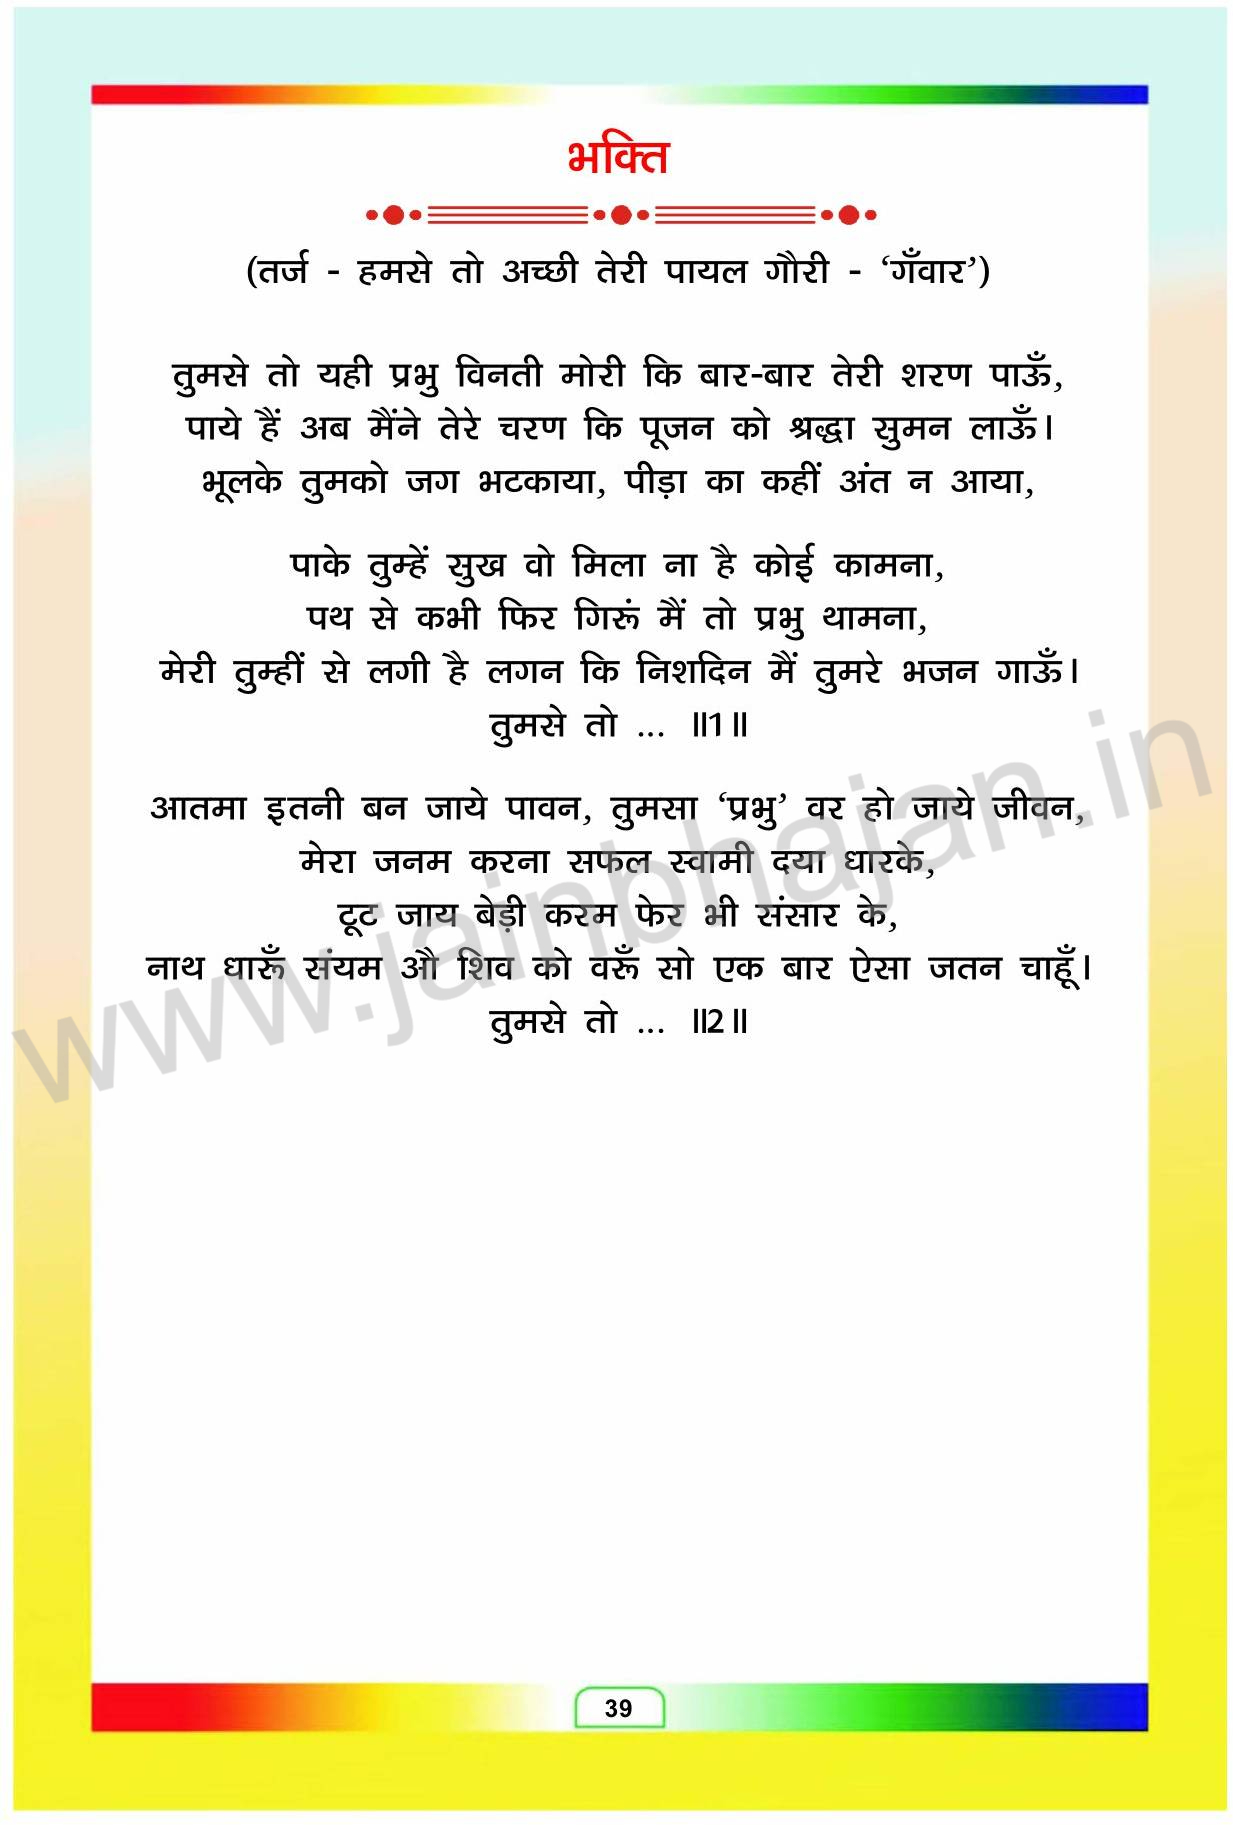 भक्ति
(तर्ज - हमसे तो अच्छी तेरी पायल गौरी - ‘गँवार’)
तुमसे तो यही प्रभु विनती मोरी कि बार-बार तेरी शरण पाऊँ,
पाये हैं अब मैंने तेरे चरण कि पूजन को श्रद्धा सुमन लाऊँ।
भूलके तुमको जग भटकाया, पीड़ा का कहीं अंत न आया,
पाके तुम्हें सुख वो मिला ना है कोई कामना,
पथ से कभी फिर गिरूं मैं तो प्रभु थामना,
मेरी तुम्हीं से लगी है लगन कि निशदिन मैं तुमरे भजन गाऊँ।
तुमसे तो ... ॥1॥
आतमा इतनी बन जाये पावन, तुमसा ‘प्रभु’ वर हो जाये जीवन,
मेरा जनम करना सफल स्वामी दया धारके,
टूट जाय बेड़ी करम फेर भी संसार के,
नाथ धारूँ संयम औ शिव को वरूँ सो एक बार ऐसा जतन चाहूँ।
तुमसे तो ... ॥2॥
www.jainbhajan.in
39